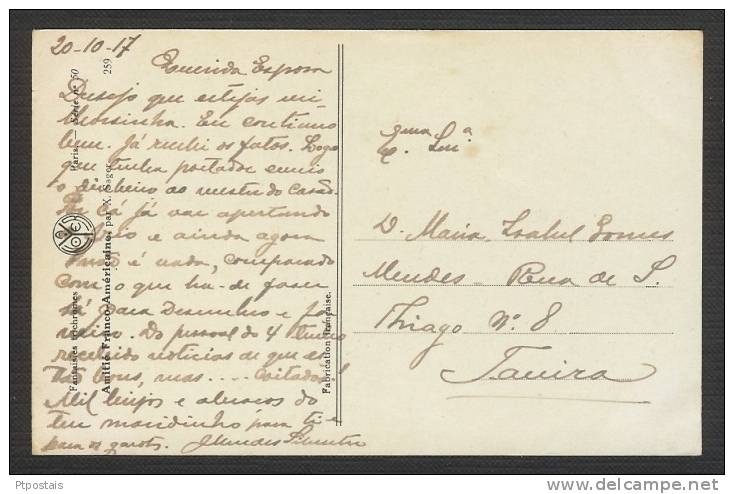 20-10-17
Querida Esposa
Desejo que estejas
Eu continuo
bem. Já recebi os fatos. Logo
que tenha portador envio
o dinheiro ao mestre do
Cá já vae apertando
o frio e ainda agora
não é nada, comparado
com o que ha-de fazer
lá para Dezembro e Ja
neiro. Do pessoal do 4 tenho
recebido noticias de que es
tão bons, mas.... coitados!
Mil beijos e abraços do
teu maridinho para ti e
para os garots. J Mendes
Fantaisies trichromes
Paris. — Série nº 50
Amitié Franco-Américaine, par X. Sager
259
Fabrication française.
Exma Snra
D. Maria Izabel Gomes
Mendes - Rua de S.
Thiago Nº 8
Tavira
Ptpostais
delcampe.net